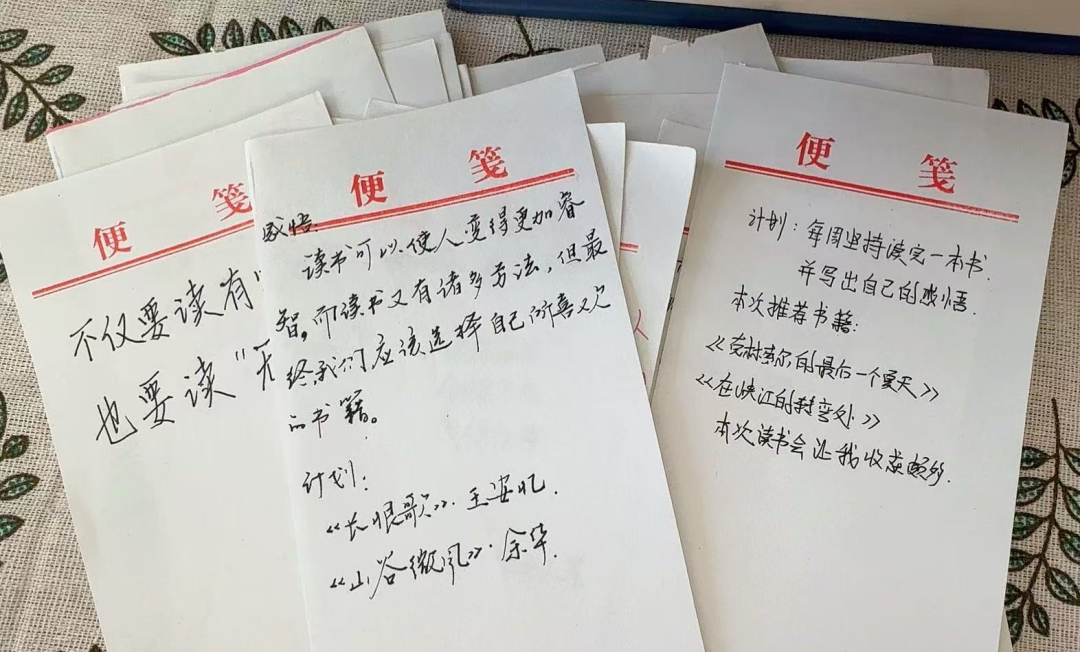 便 笺
不仅要读有"
也要读"无
便 笺
感悟
读书可以使人变得更加睿
智。而读书又有诸多方法，但最
终我们应该选择自己所喜欢
的书籍。
计划：
《长恨歌》·王安忆.
《山谷微风》·余华.
便 笺
计划：每周坚持读完一本书.
并写出自己的感悟.
本次推荐书籍：
《克林索尔的最后一个夏天》
《在峡江的转弯处》
本次读书会让我收获颇多.
人